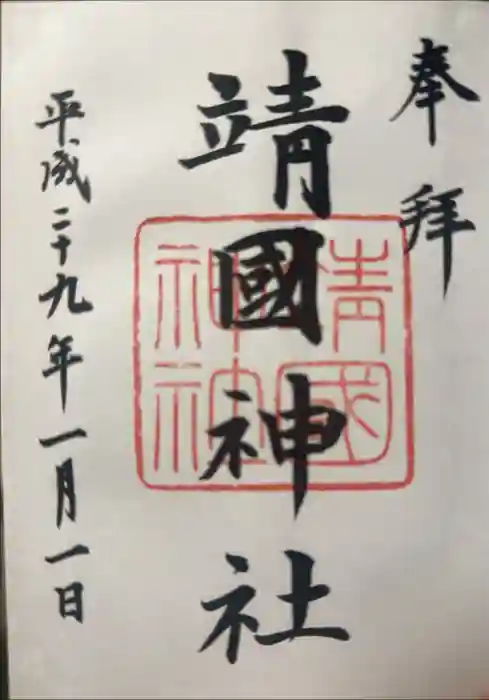 奉拜
靖國神社
平成二十九年一月一日
靖國
神社